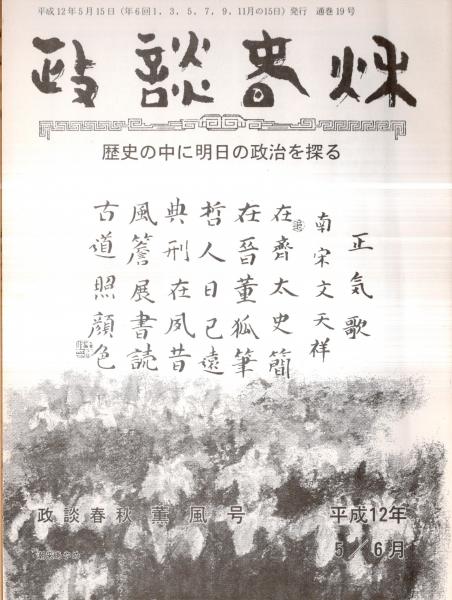 平成12年5月15日(年6回1、3、5、7、9、11月の15日)発行 通巻19号
政談春秋
歴史の中に明日の政治を探る
正気歌
南宋文天祥
在齊太史簡
在晉董狐筆
哲人日已遠
典刑在夙昔
風簷展書読
古道照顔色
政談春秋 薫風号 平成12年
5/6月